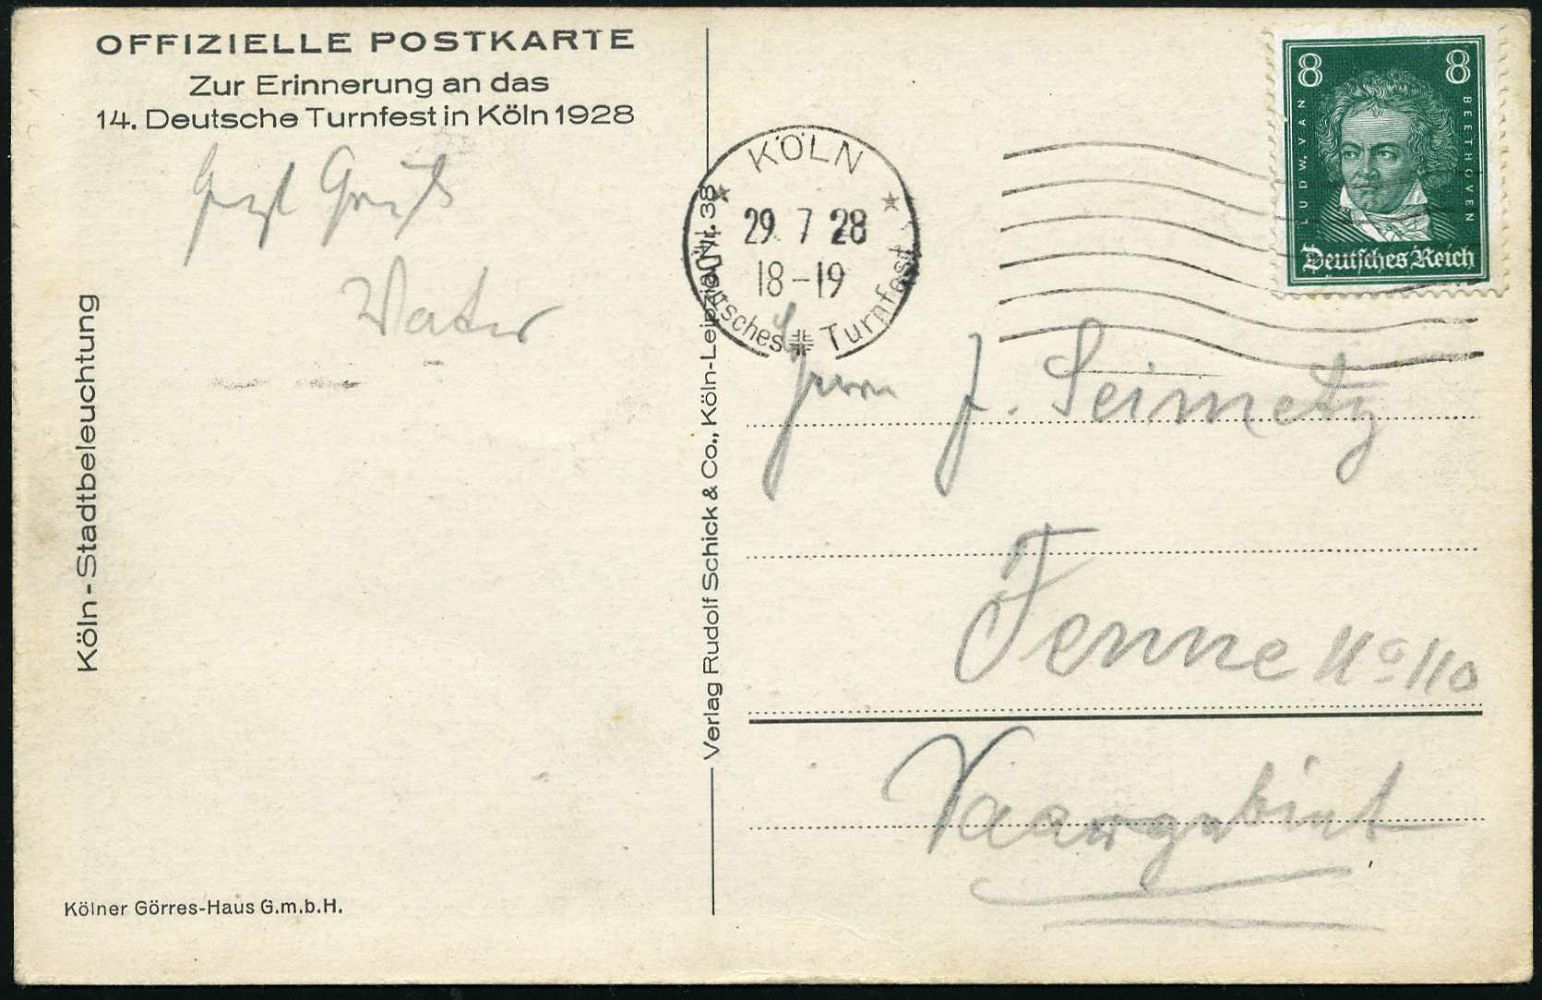 OFFIZIELLE POSTKARTE
Zur Erinnerung an das
14. Deutsche Turnfest in Köln 1928
Gruß
Vater
Köln-Stadtbeleuchtung
Kölner Görres-Haus G.m.b.H.
Verlag Rudolf Schick & Co., Köln-Leipzig Nr. 38
KÖLN
29. 7 28
18-19
14. Deutsches Turnfest
8 8
LUDW. VAN BEETHOVEN
Deutsches Reich
Herrn J. Seimetz
Fenne No 110
Saargebiet